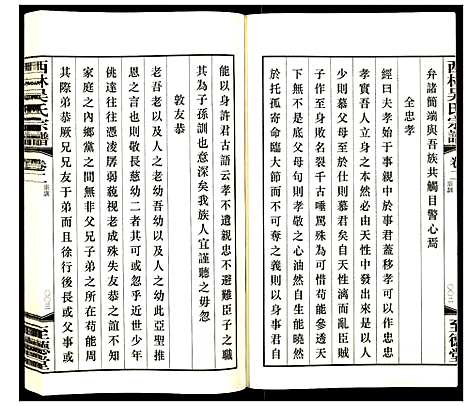 西林吳氏宗譜 卷二 宗訓
至德堂
弁諸簡端與吾族共觸目警心焉
全忠孝
經曰夫孝始于事親中於事君蓋移孝可以作忠忠
孝實吾人立身之本然必由天性中發出來的孝人
於此試思慕父母慕君真有天性濟而亂臣賊
子千古以來身敗名裂千古唾罵殊爲可惜苟能參透天
下無一不是底父母句則孝敬之心油然自生能曉然
於托孤寄命臨大節而不可奪之義則以身事君自
能以身許君古語云孝不遺親忠不避難臣子之職
其爲子孫訓也意深矣我族人宜謹聽之毋忽
敦友恭
老吾老以及人之老幼吾幼以及人之幼此亞聖推
恩之言也則即長慈幼二者其可或忽乎近世少年
佻達往往恣凌孱弱藐視老成殊失友恭之誼不知
家庭之內鄉黨之間無非父兄子弟之所在苟能周
其際弟恭厥兄兄友厥弟徐行後長或父事或
西林吳氏宗譜 卷二 宗訓
至德堂